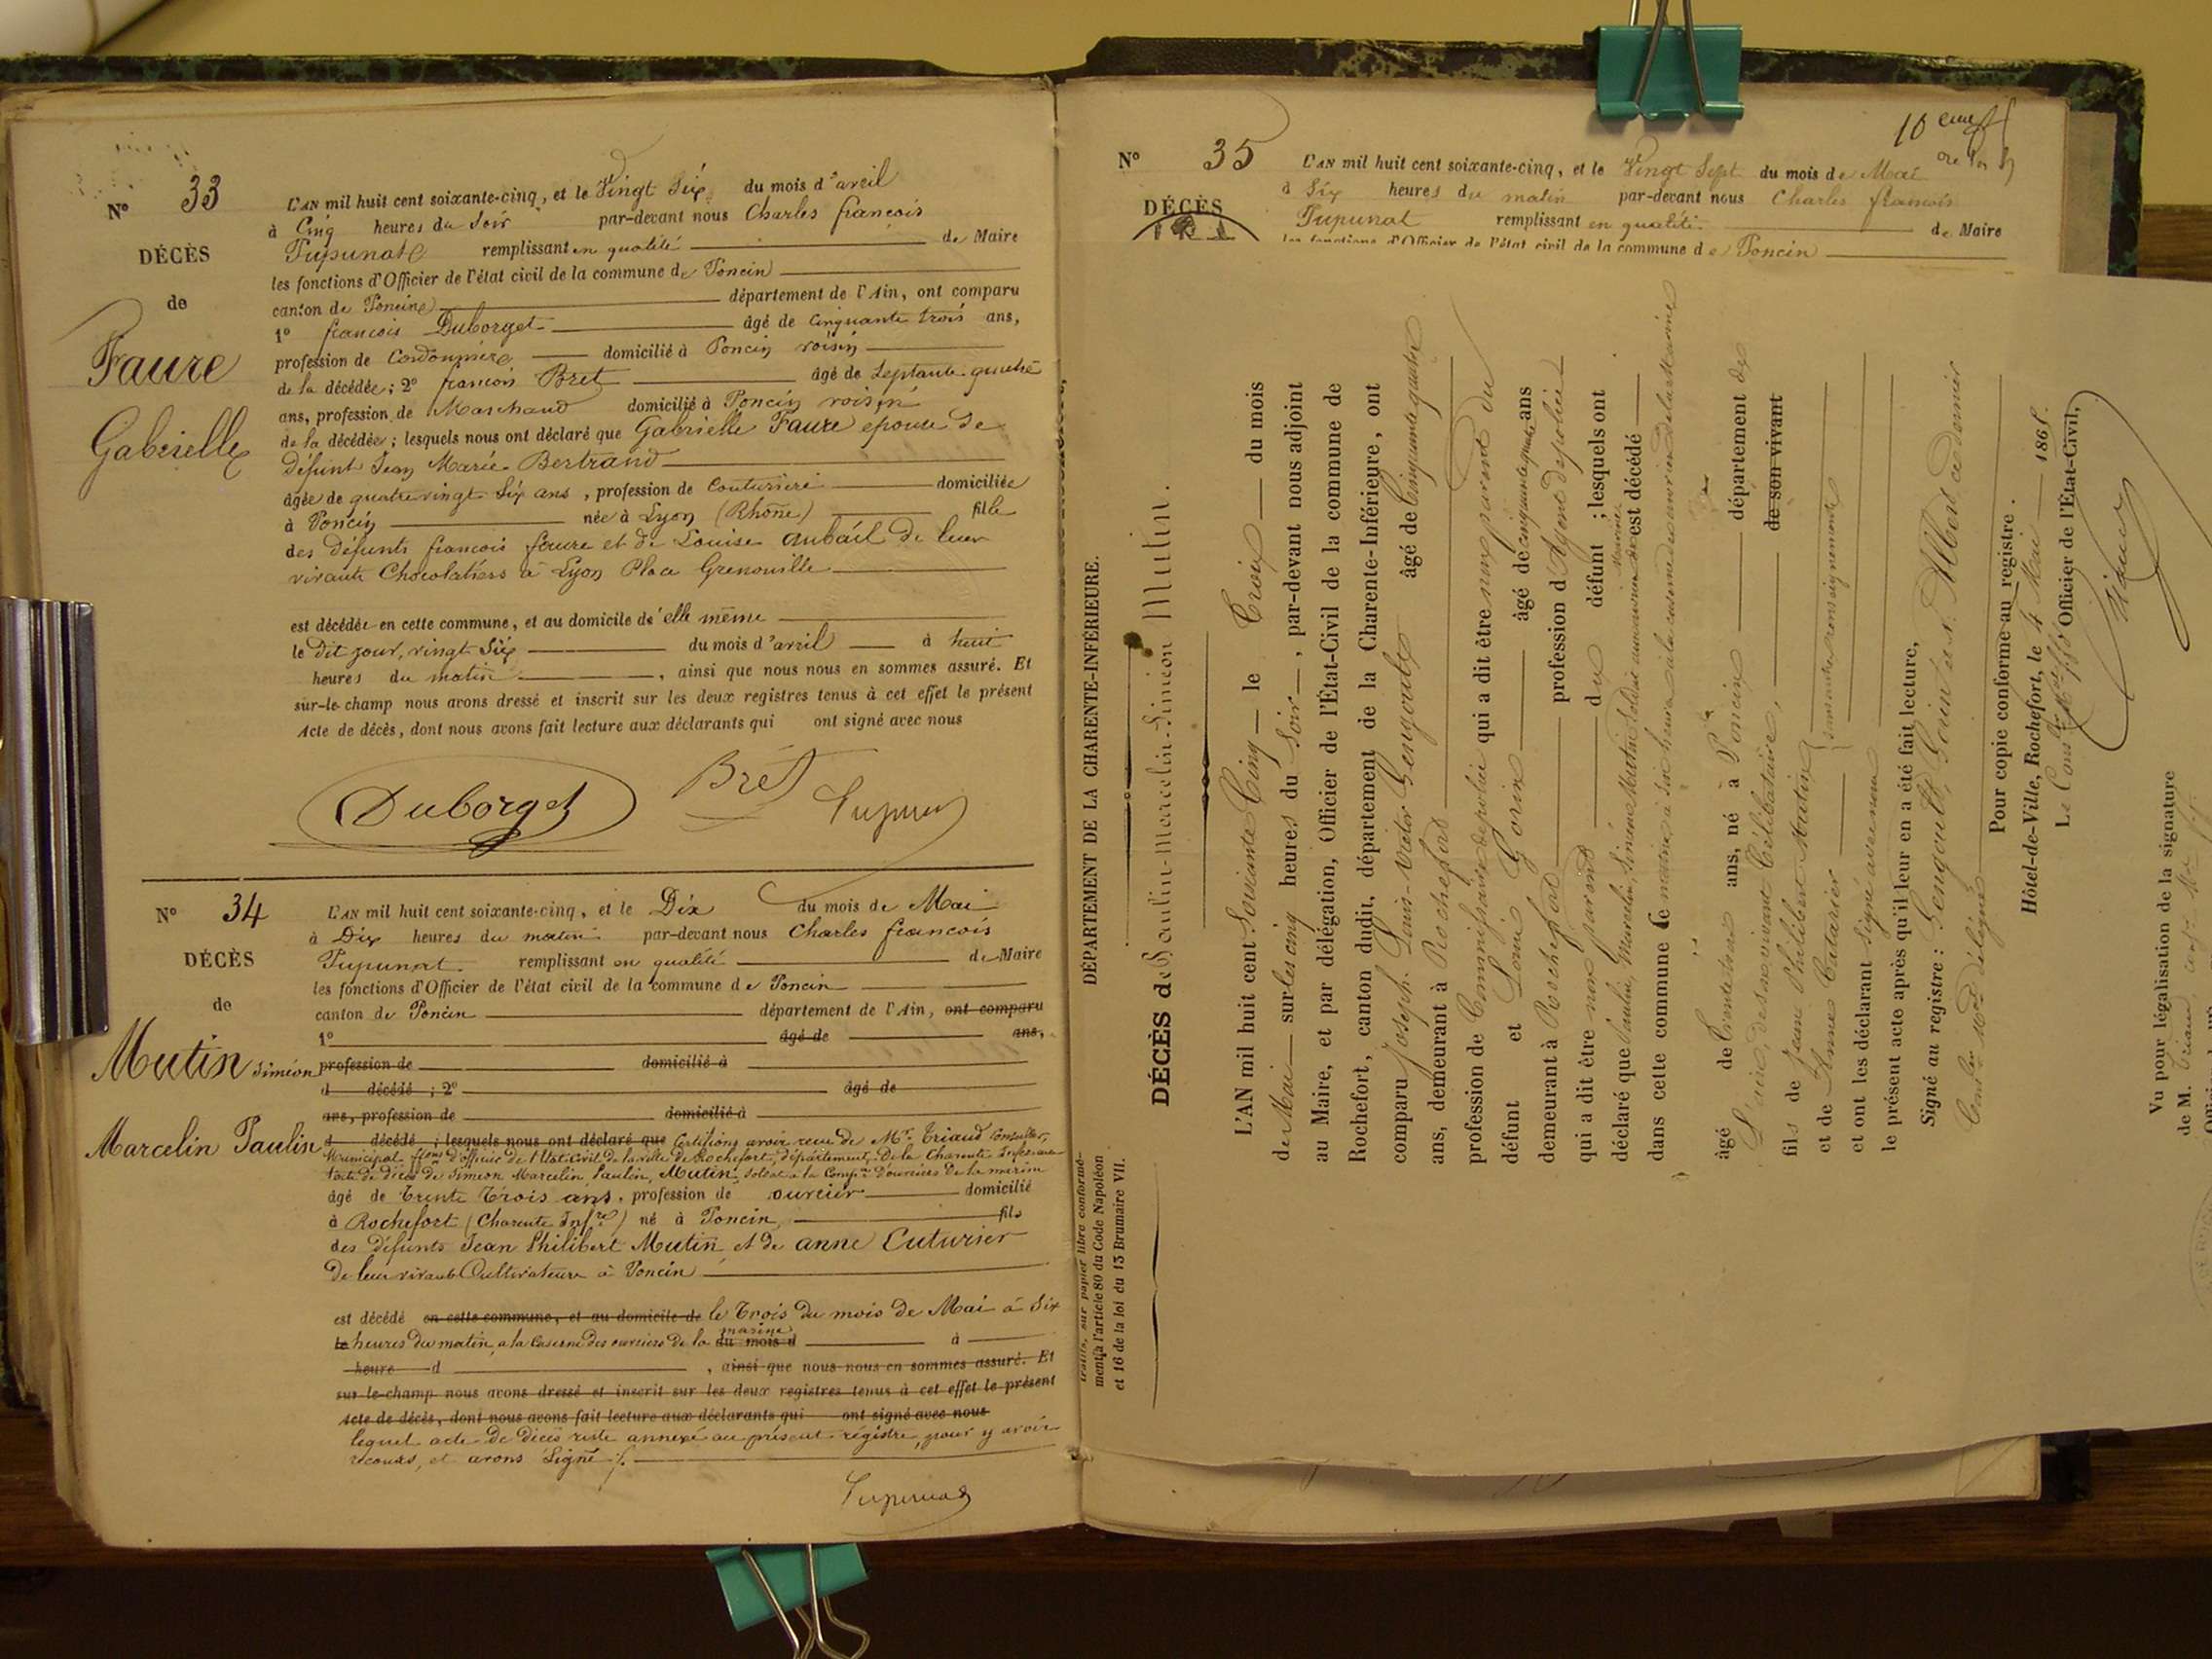 N° 33
DÉCÈS
de
Faure
Gabrielle
L'AN mil huit cent soixante-cinq, et le Vingt Six du mois d'avril
à Cinq heures du Soir par-devant nous Charles francois
Tupunat remplissant en qualité de Maire
les fonctions d'Officier de l'état civil de la commune de Poncin
canton de Poncin département de l'Ain, ont comparu
1° francois Duborget âgé de Cinquante trois ans,
profession de Cordonnier domicilié à Poncin voisin
de la décédée; 2° francois Bret âgé de Septante quatre
ans, profession de Marchand domicilié à Poncin voisin
de la décédée; lesquels nous ont déclaré que Gabrielle Faure epouse de
défunt Jean Marie Bertrand
âgée de quatre vingt Six ans, profession de Couturiere domiciliée
à Poncin née à Lyon (Rhône) fille
des défunts francois faure et de Louise aubail de leur
vivants Chocolatiers à Lyon Place Grenouille
est décédée en cette commune, et au domicile de elle même
le dit jour, vingt Six du mois d'avril à huit
heures du matin, ainsi que nous nous en sommes assuré. Et
sur-le-champ nous avons dressé et inscrit sur les deux registres tenus à cet effet le présent
Acte de décès, dont nous avons fait lecture aux déclarants qui ont signé avec nous
Duborget Bret Tupunat
N° 34
DÉCÈS
de
Mutin Siméon
Marcelin Paulin
L'AN mil huit cent soixante-cinq, et le Dix du mois de Mai
à Dix heures du matin par-devant nous Charles francois
Tupunat remplissant en qualité de Maire
les fonctions d'Officier de l'état civil de la commune de Poncin
canton de Poncin département de l'Ain, ont comparu
1° âgé de ans,
profession de domicilié à
d décédé; 2° âgé de
ans, profession de domicilié à
d décédé; lesquels nous ont déclaré que Certifions avoir recu de Mr. Triaud Conseiller
Municipal fions d'officier de l'Etat Civil de la ville de Rochefort, département De la Charente Inférieure
l'acte de décès de Siméon Marcelin, Paulin, Mutin, Soldat a la Compie D'ouvriers De la marine
âgé de Trente Trois ans, profession de ouvrier domicilié
à Rochefort (Charente Infre) né à Poncin fils
des défunts Jean Philibert Mutin et de anne Cuturier
de leur vivants Cultivateurs à Poncin
est décédé en cette commune, et au domicile de le Trois du mois de Mai à Six
le heures du matin, a la Caserne des ouvriers de la marine du mois d à
heure d , ainsi que nous nous en sommes assuré. Et
sur-le-champ nous avons dressé et inscrit sur les deux registres tenus à cet effet le présent
Acte de décès, dont nous avons fait lecture aux déclarants qui ont signé avec nous
lequel acte de Décès reste annexé au présent régistre, pour y avoir
recours, et avons Signé ./.
Tupunat
N° 35
DÉCÈS
L'AN mil huit cent soixante-cinq, et le Vingt Sept du mois de Mai
à Six heures du matin par-devant nous Charles francois
Tupunat remplissant en qualité de Maire
les fonctions d'Officier de l'état civil de la commune de Poncin
10
DÉPARTEMENT DE LA CHARENTE-INFÉRIEURE.
DÉCÈS de Paulin-Marcelin-Siméon Mutin.
L'AN mil huit cent Soixante Cinq le Trois du mois
de Mai sur les cinq heures du Soir, par-devant nous adjoint
au Maire, et par délégation, Officier de l'État-Civil de la commune de
Rochefort, canton dudit, département de la Charente-Inférieure, ont
comparu Joseph Louis-Victor Gengoult âgé de Cinquante quatre
ans, demeurant à Rochefort
profession de Commissaire de police qui a dit être non parent du
défunt et Louis Gorin âgé de cinquante quatre ans
demeurant à Rochefort profession d'Agent de police
qui a dit être non parent du défunt; lesquels ont
déclaré que Paulin, Marcelin, Siméon Mutin Soldat est décédé
dans cette commune Ce matin à six heures à la caserne des ouvriers de la Marine
âgé de Trente trois ans, né à Poncin département de
L'ain, de son vivant Célibataire, de son vivant
fils de Jean Philibert Mutin
et de Anne Cuturier } sans autres renseignements
et ont les déclarant Signé avec nous
le présent acte après qu'il leur en a été fait lecture,
Signé au registre: Gengoult, Gorin et Albert ce dernier
Conser Mpal délégué
Pour copie conforme au registre.
Hôtel-de-Ville, Rochefort, le 4 Mai 1865.
Le Conser Mpal ffd Officier de l'État-Civil,
Triaud
ment à l'article 80 du Code Napoléon
et 16 de la loi du 13 Brumaire VII.
Vu pour légalisation de la signature
de M. Triaud, conser Mal